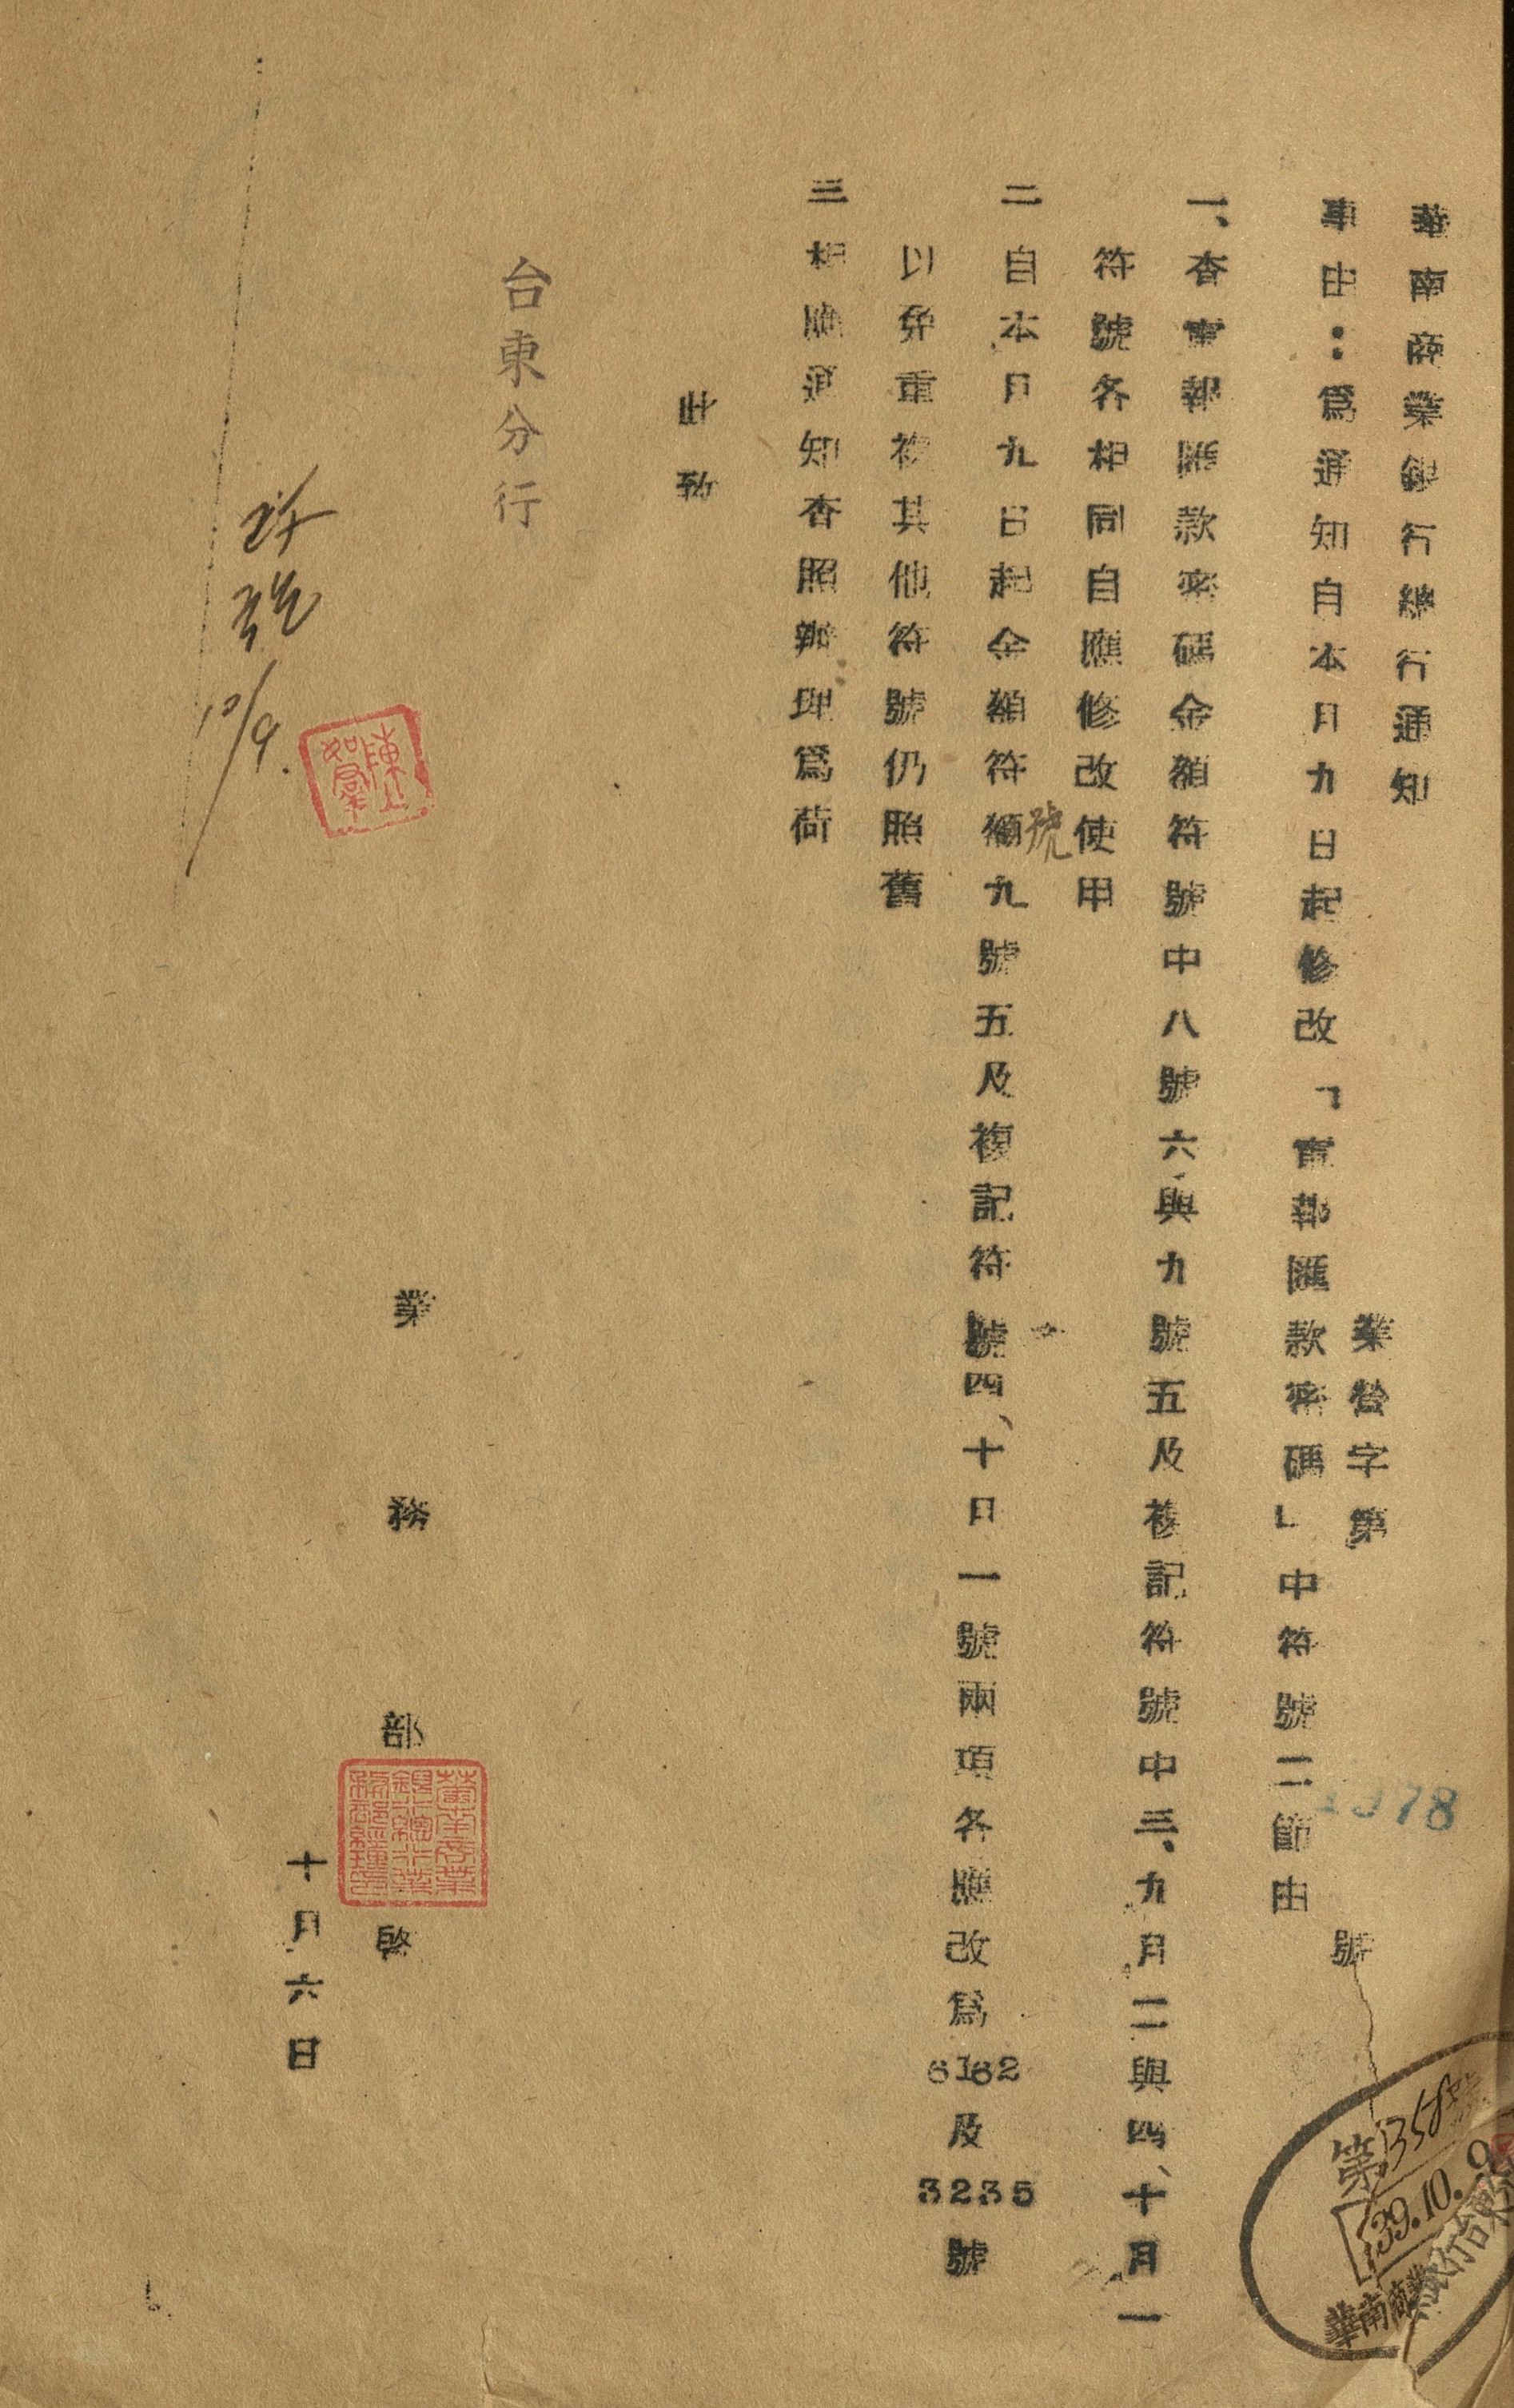 華南商業銀行總行通知
業營字第1378號
事由：為通知自本月九日起修改「電報匯款密碼」中符號二節由
一、查電報匯款密碼金額符號中八號六、與九號五及複記符號中三、九月二與四、十月一
符號各相同自應修改使用
二自本月九日起金額符號九號五及複記符號四、十日一號兩項各應改為6162及3235號
以免重複其他符號仍照舊
三相應通知查照辦理為荷
此致
台東分行
業務部啟
十月六日
10/9.
陳如山
第1358號
39.10.9
華南商業銀行台東分